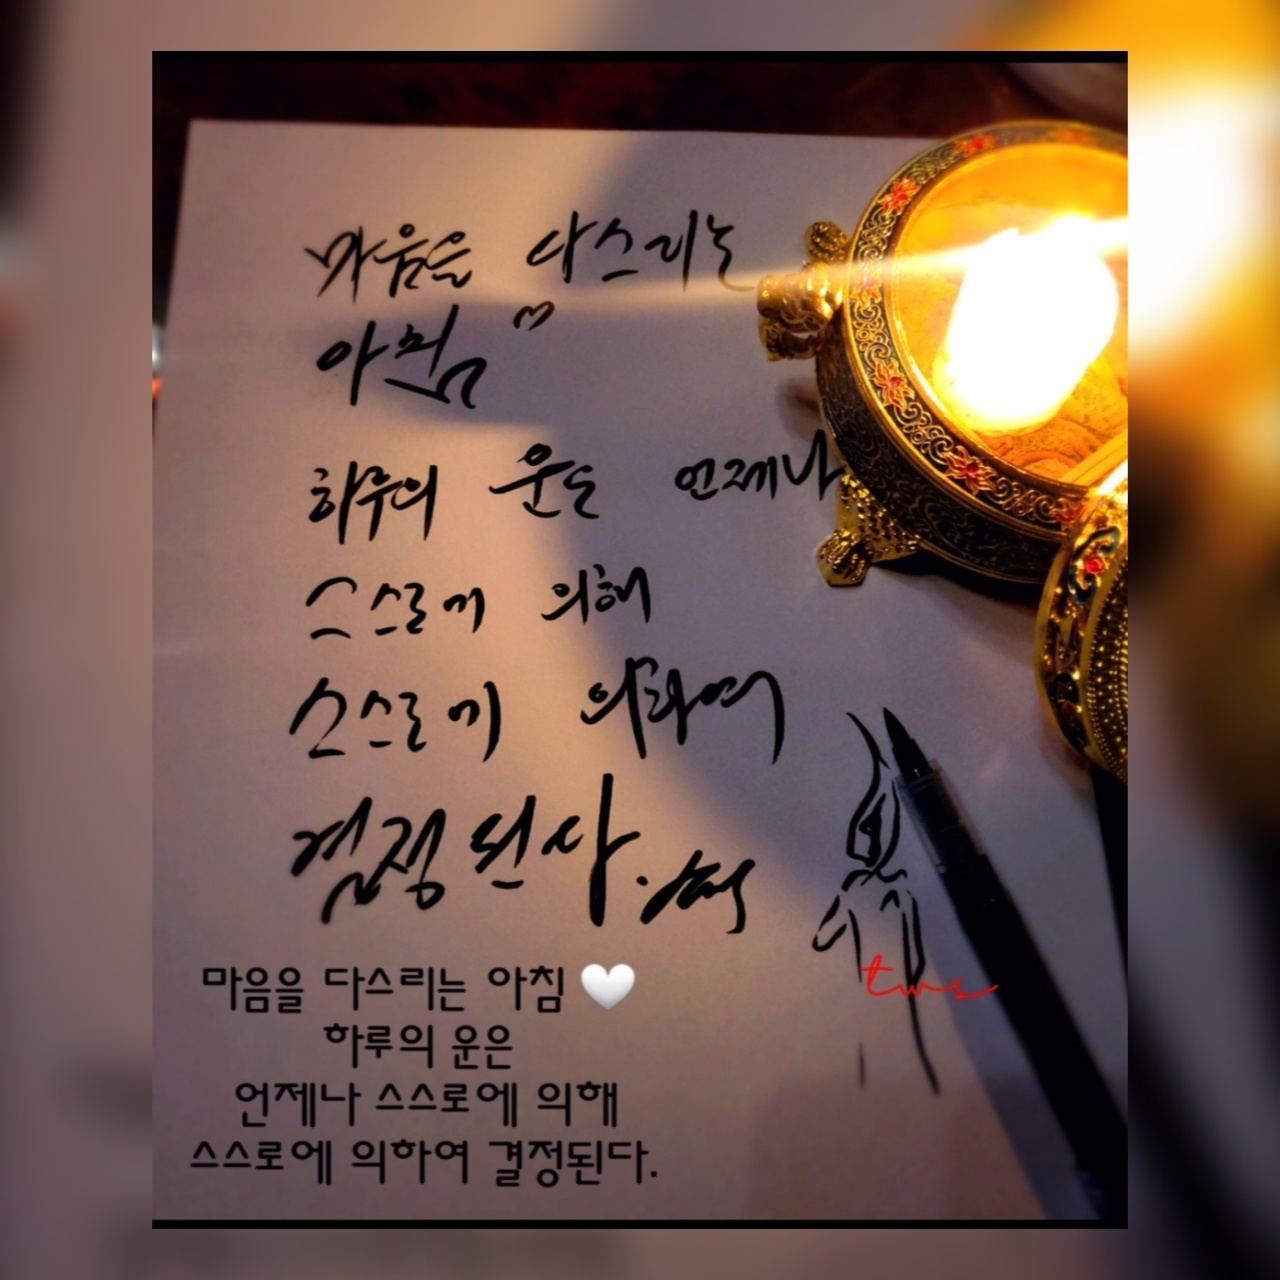 마음을 다스리는
아침
하루의 운은 언제나
스스로에 의해
스스로에 의하여
결정된다.
tws
마음을 다스리는 아침 🤍
하루의 운은
언제나 스스로에 의해
스스로에 의하여 결정된다.